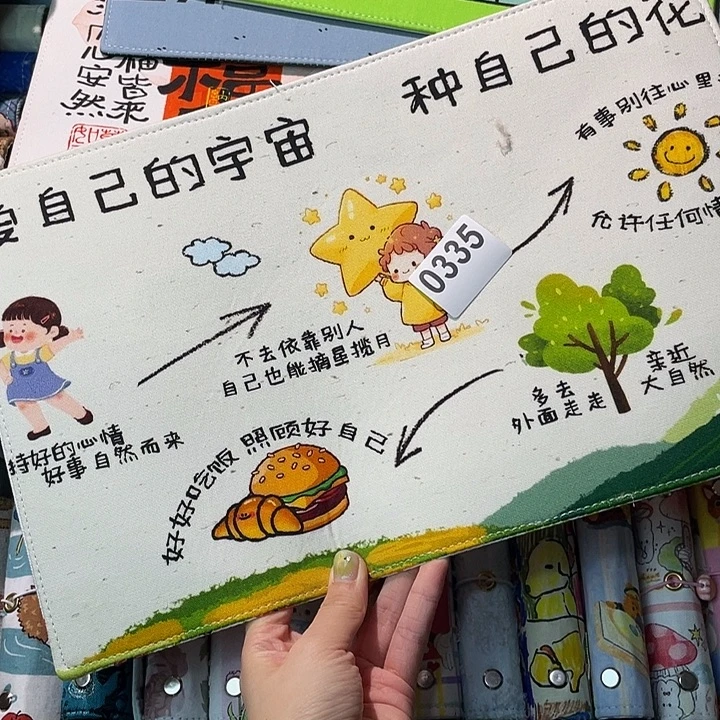 种自己的花
爱自己的宇宙
有事别往心里
允许任何情
0335
不去依靠别人
自己也能摘星揽月
持好的心情
好事自然而来
多去
外面走走
亲近
大自然
好好吃饭 照顾好自己
福皆来
心安然